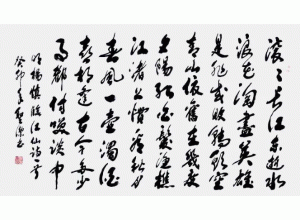 滚々長江東逝水
浪花淘盡英雄
是非成敗轉頭空
青山依舊在幾度
夕陽紅白髮漁樵
江渚上慣看秋月
春風一壺濁酒
喜相逢古今多少
事都付笑談中
明楊慎臨江仙詞
癸卯年